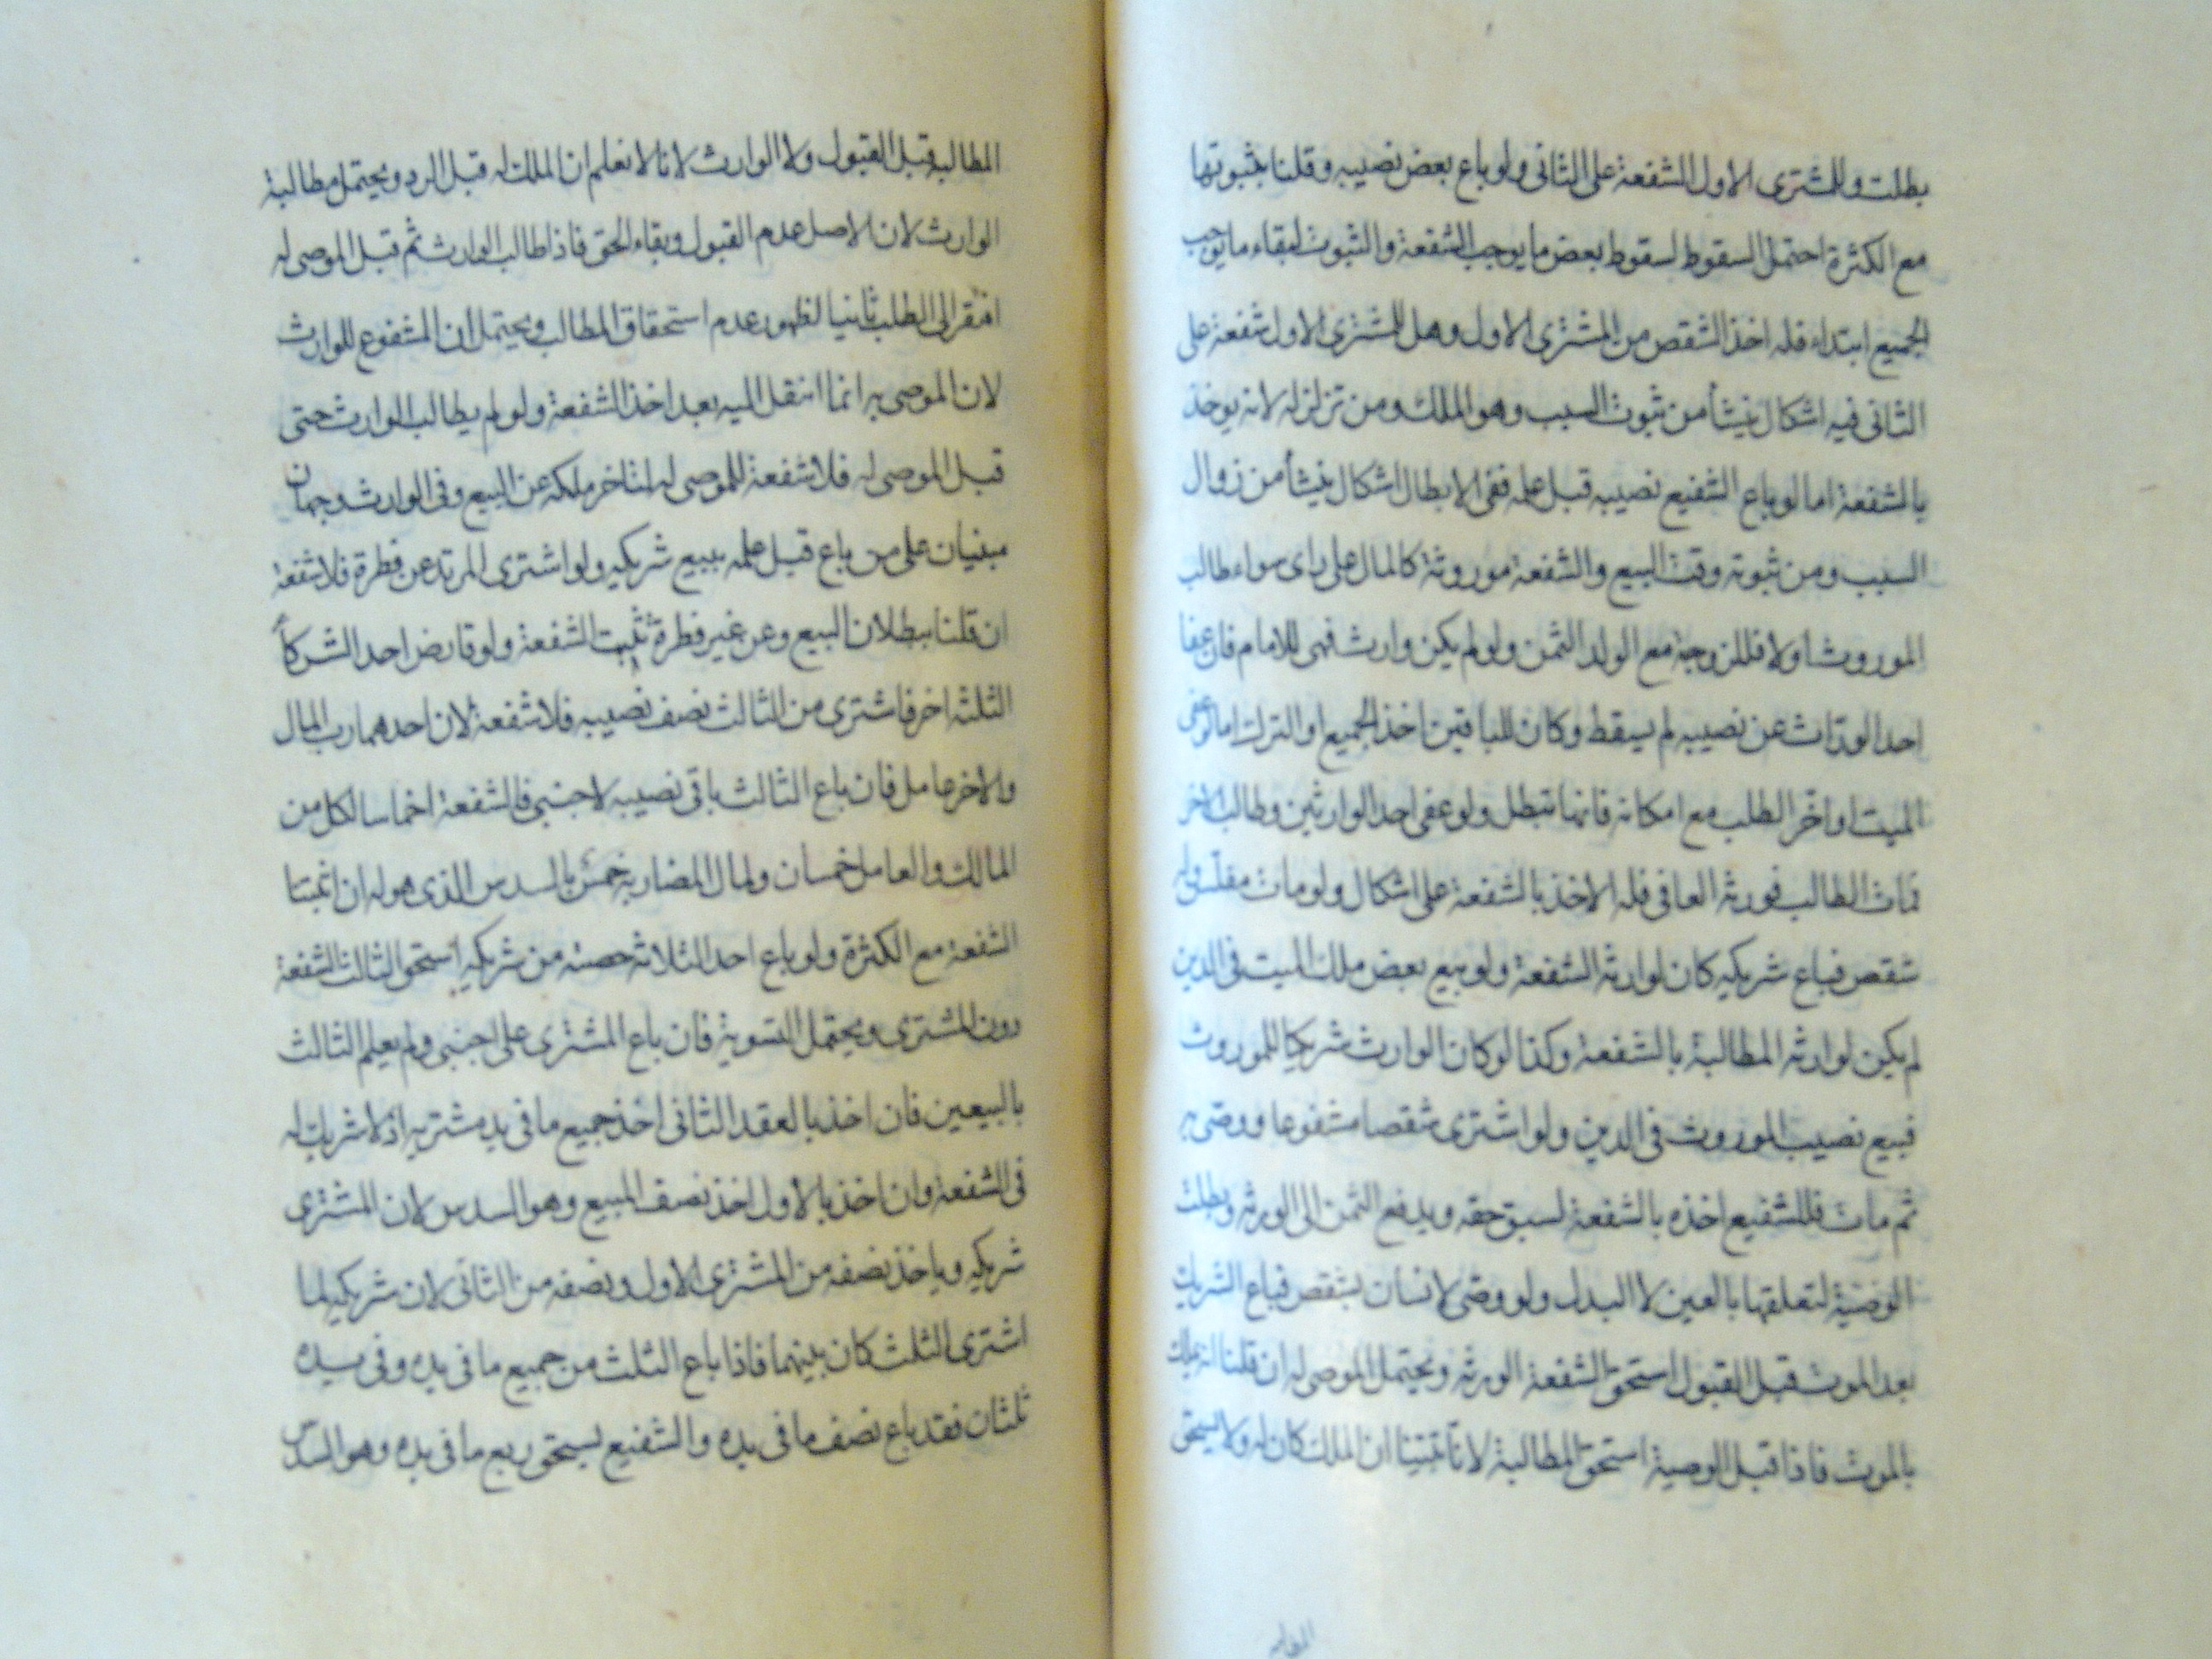 بطلت وللمشترى الاول الشفعة على الثانى ولو باع بعض نصيبه وقلنا بثبوتها
مع الكثرة احتمل السقوط لسقوط بعض ما يوجب الشفعة والثبوت لبقاء ما يوجب
الجميع ابتداء فله اخذ الشقص من المشترى الاول وهل للمشترى الاول شفعة على
الثانى فيه اشكال ينشأ من ثبوت السبب وهو الملك ومن تزلزله لانه يوخذ
بالشفعة اما لو باع الشفيع نصيبه قبل علمه ففى الابطال اشكال ينشأ من زوال
السبب ومن ثبوته وقت البيع والشفعة موروثة كالمال على راى سواء طالب
الموروث اولا فللزوجة مع الولد الثمن ولو لم يكن وارث فهى للامام فان عفا
احد الورّاث عن نصيبه لم يسقط وكان للباقين اخذ الجميع او الترك اما لو عفى
الميت او اخّر الطلب مع امكانه فانها تبطل ولو عفى احد الوارثين وطالب الاخر
فمات الطالب فورثه العافى فله الاخذ بالشفعة على اشكال ولو مات مفلّس وله
شقص فباع شريكه كان لوارثه الشفعة ولو بيع بعض ملك الميت فى الدين
لم يكن لوارثه المطالبة بالشفعة وكذا لو كان الوارث شريكا للموروث
فبيع نصيب الموروث فى الدين ولو اشترى شقصا مشفوعا ووصّى به
ثم مات فللشفيع اخذه بالشفعة لسبق حقه ويدفع الثمن الى الورثه وبطلت
الوصّية لتعلقها بالعين لا البدل ولو وصّى لانسان بشقص فباع الشريك
بعد الموت قبل القبول استحق الشفعة الورثه ويحتمل الموصى له ان قلنا انه يملك
بالموت فاذا قبل الوصية استحق المطالبة لانا تبيّنا ان الملك كان له ولا يستحق
المطالبه
المطالبة قبل القبول ولا الوارث لانا لا نعلم ان الملك له قبل الرد ويحتمل مطالبة
الوارث لان الاصل عدم القبول وبقاء الحق فاذا طالب الوارث ثم قبل الموصى له
افتقر الى الطلب ثانيا لظهور عدم استحقاق المطالب ويحتمل ان المشفوع للوارث
لان الموصى به انما انتقل اليه بعد اخذ الشفعة ولو لم يطالب الوارث حتى
قبل الموصى له فلا شفعة للموصى له لتاخر ملكه عن البيع وفى الوارث وجهان
مبنيان على من باع قبل علمه ببيع شريكه ولو اشترى المرتد عن فطرة فلا شفعة
ان قلنا ببطلان البيع وعن غير فطرة تثبت الشفعة ولو قارض احد الشركاء
الثلثه اخر فاشترى من الثالث نصف نصيبه فلا شفعة لان احدهما رب المال
والاخر عامل فان باع الثالث باقى نصيبه لاجنبى فالشفعة اخماسا لكل من
المالك والعامل خمسان ولمال المضاربة خمس بالسدس الذى هو له ان اثبتنا
الشفعة مع الكثرة ولو باع احد الثلاثه حصته من شريكه استحق الثالث الشفعة
دون المشترى ويحتمل التسوية فان باع المشترى على اجنبى ولم يعلم الثالث
بالبيعين فان اخذ بالعقد الثانى اخذ جميع ما فى يد مشتريه اذ لا شريك له
فى الشفعة وان اخذ بالاول اخذ نصف المبيع وهو السدس لان المشترى
شريكه وياخذ نصفه من المشترى الاول ونصفه من الثانى لان شريكه لما
اشترى الثلث كان بينهما فاذا باع الثلث من جميع ما فى يده وفى يده
ثلثان فقد باع نصف ما فى يده والشفيع يستحق ربع ما فى يده وهو السدس